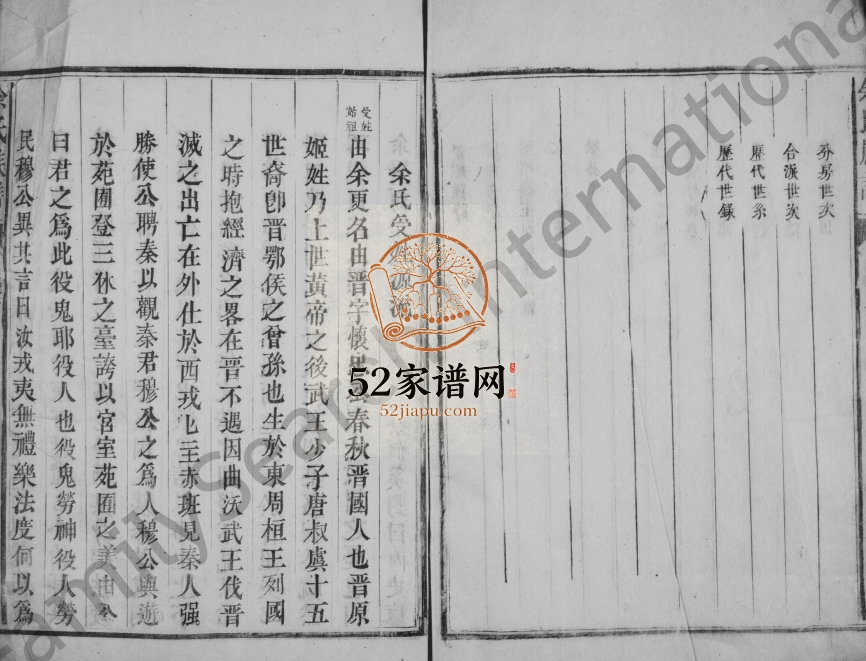 分房世次
合派世次
歷代世系
歷代世錄
余氏受姓源
受姓始祖
由余更名由晉字懷春秋晉國人也晉原
姬姓乃上世黃帝之後武王少子唐叔虞十五
世裔卽晉鄂侯之曾孫也生於東周桓王列國
之時抱經濟之畧在晉不遇因曲沃武王伐晉
滅之出亡在外仕於西戎七王赤班見秦人强
勝使公聘秦以觀秦君穆公之爲人穆公與遊
於苑囿登三休之臺誇以宮室苑囿之美由公
曰君之爲此役鬼耶役人也役鬼勞神役人勞
民穆公異其言曰汝戎夷無禮樂法度何以爲
52家谱网
52jiapu.com
FamilySearch International